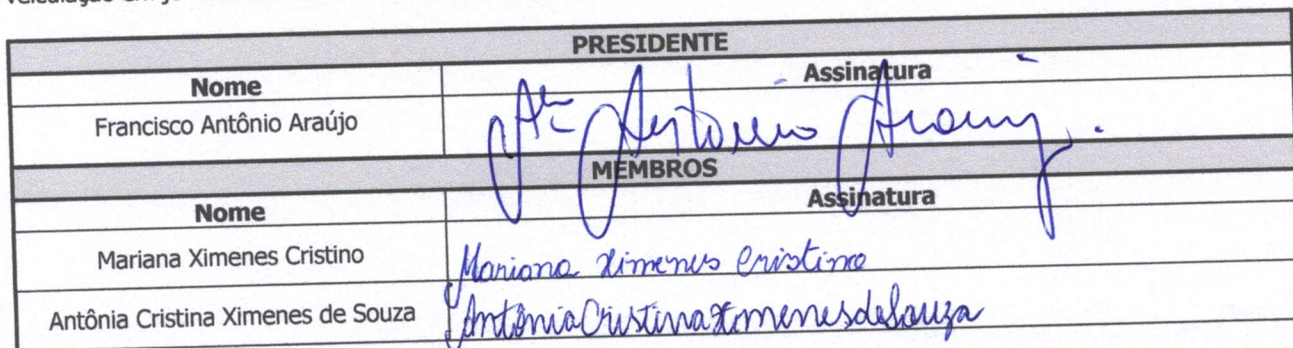 PRESIDENTE
Nome Assinatura
Francisco Antônio Araújo Antonio
MEMBROS
Nome Assinatura
Mariana Ximenes Cristino Mariana Ximenes Cristino
Antônia Cristina Ximenes de Souza Antônia Cristina Ximenes de Souza